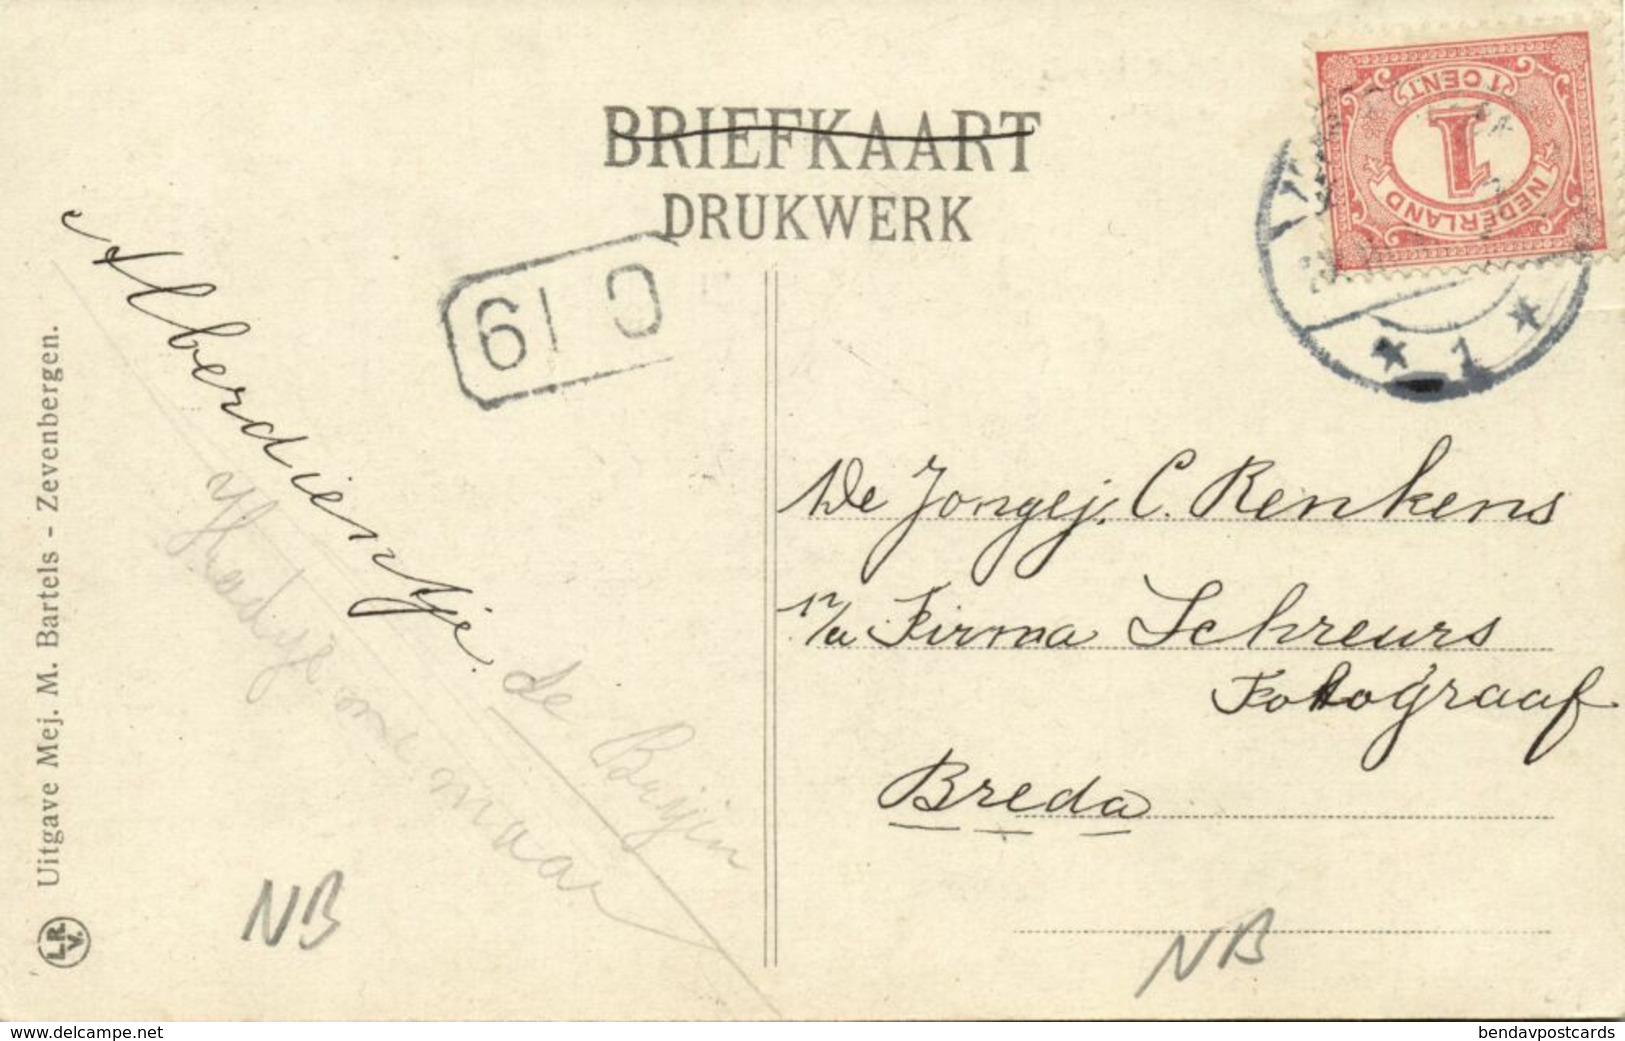 BRIEFKAART
DRUKWERK
1 CENT
1
NEDERLAND
C 19
1
Alberdientje.
de Bruijn
me maar
De Jongej. C. Renkens
p/a Firma Schreurs
Fotograaf
Breda
NB
NB
Uitgave Mej. M. Bartels - Zevenbergen.
L.R.
V.
www.delcampe.net
bendavpostcards